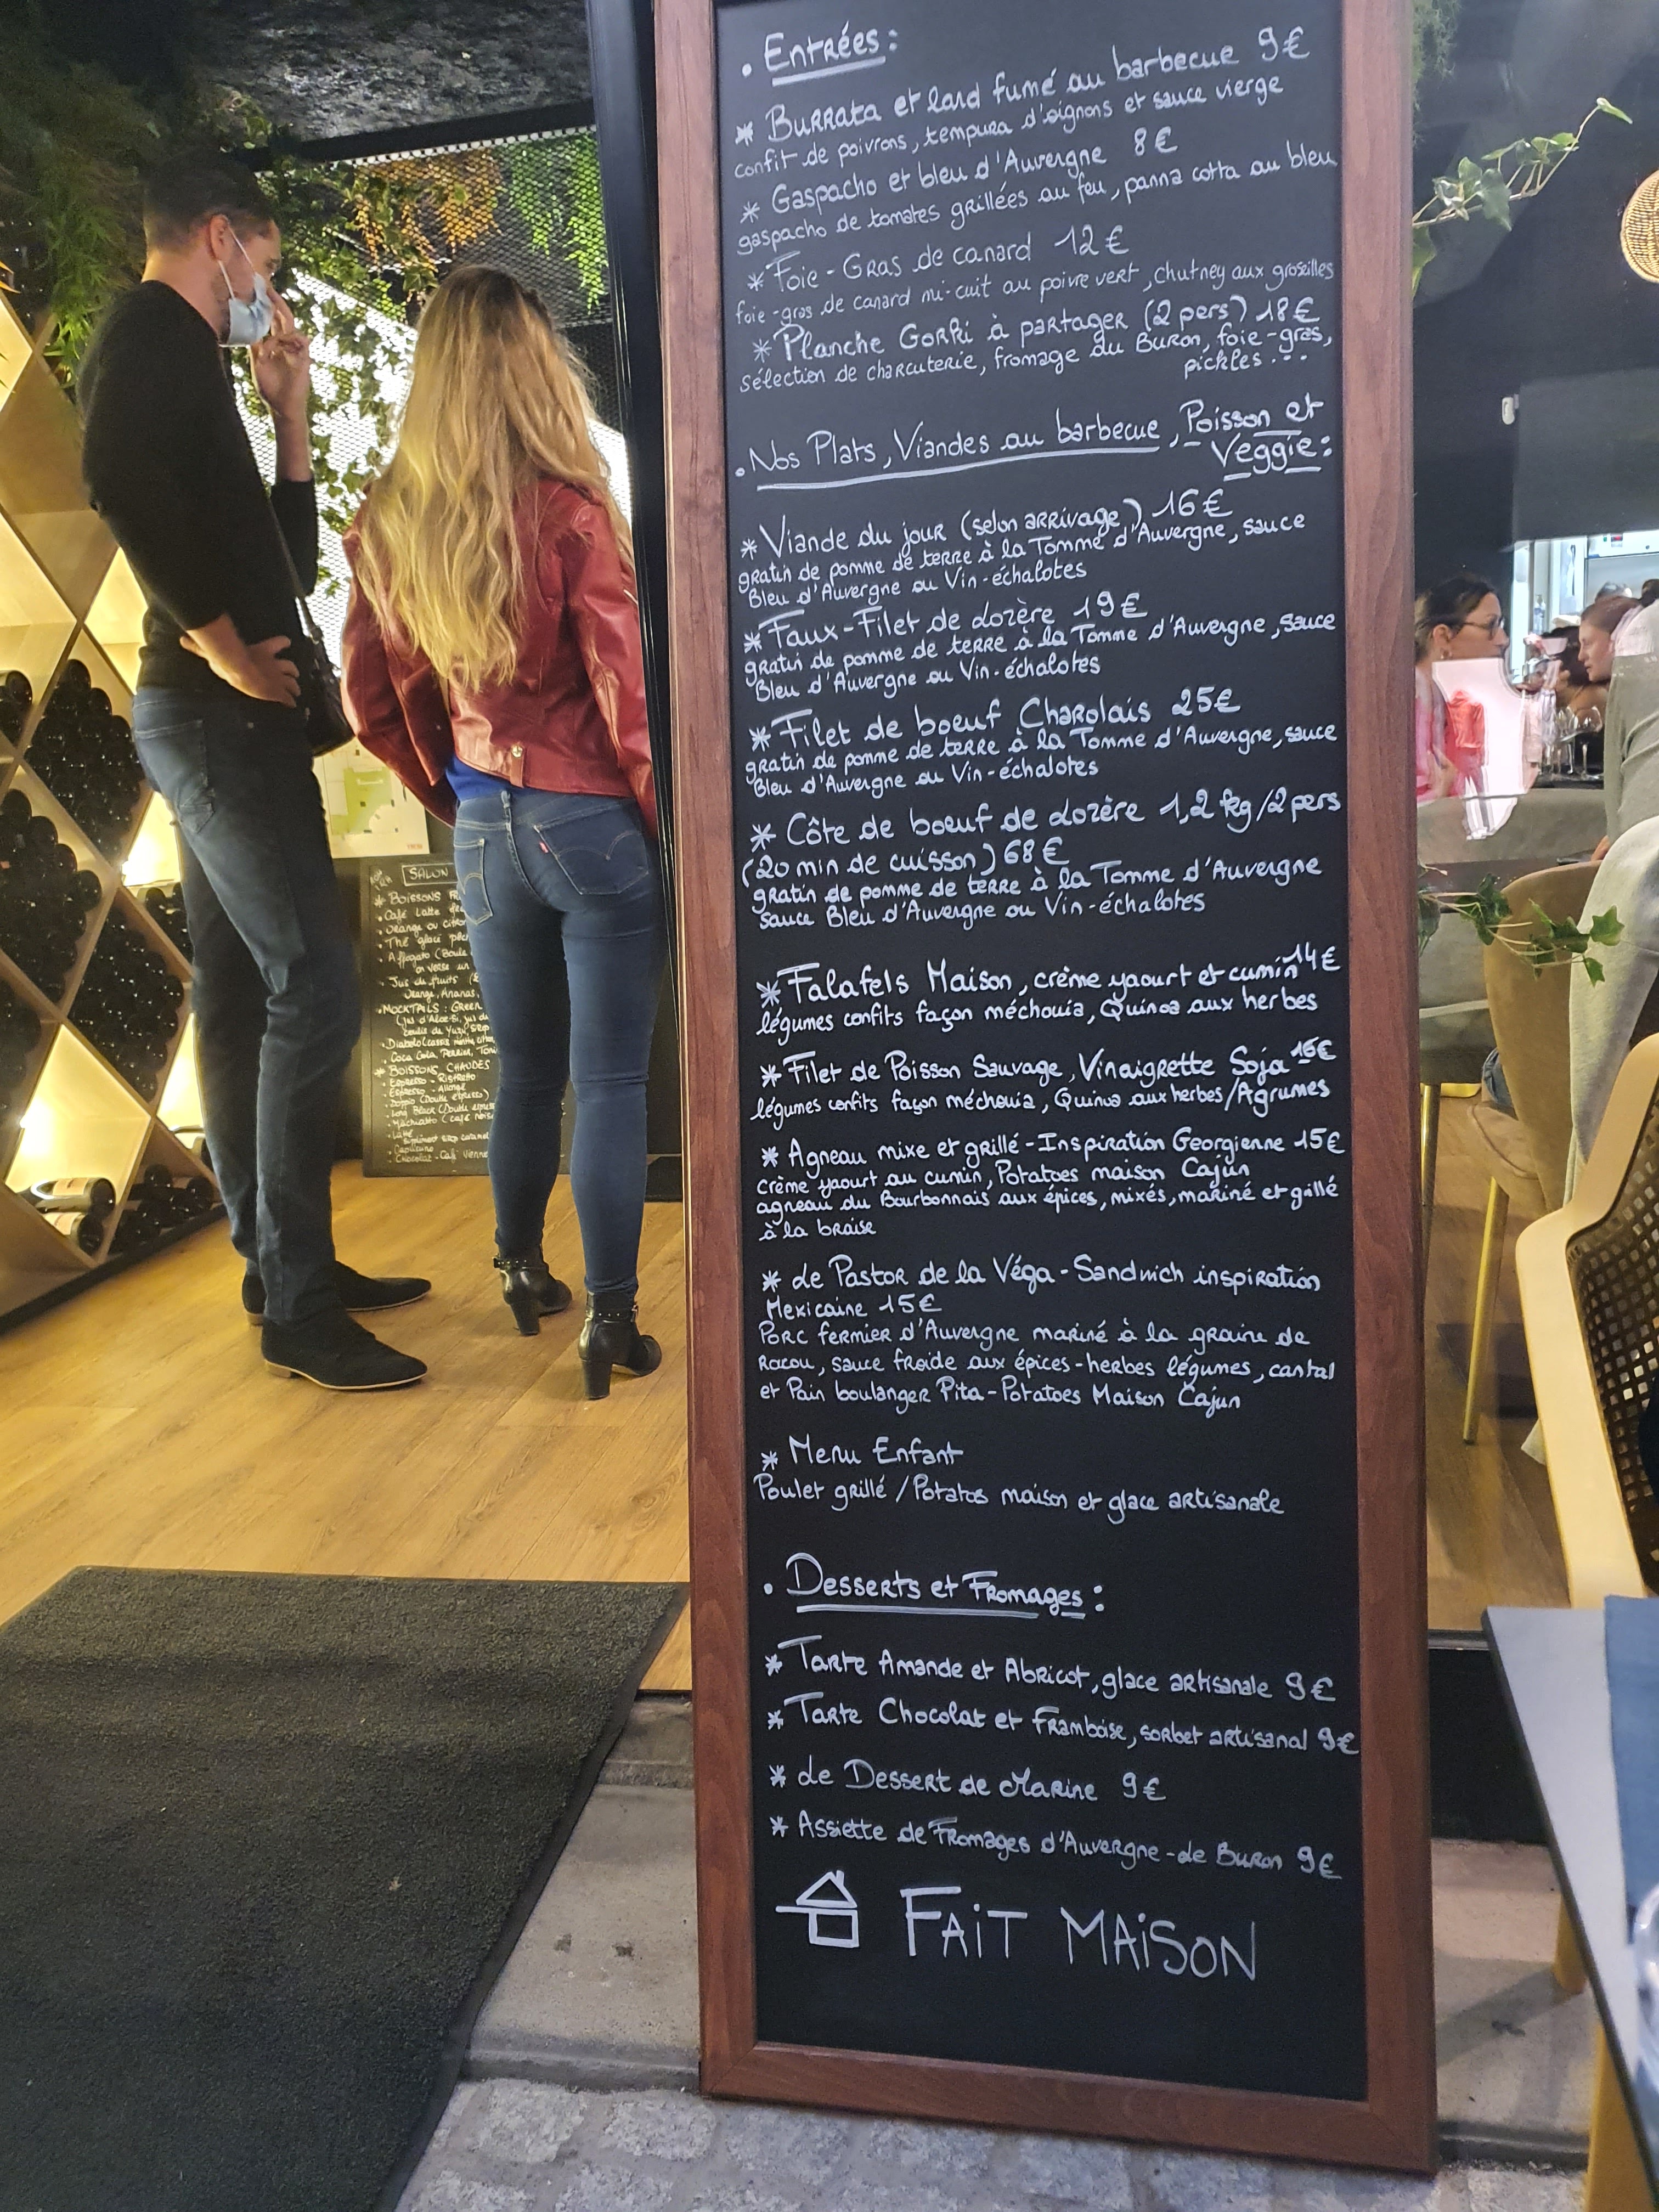 • Entrées :
* Burrata et lard fumé au barbecue 9€
confit de poivrons, tempura d'oignons et sauce vierge
* Gaspacho et bleu d'Auvergne 8€
gaspacho de tomates grillées au feu, panna cotta au bleu
* Foie-Gras de canard 12€
foie-gras de canard mi-cuit au poivre vert, chutney aux groseilles
* Planche Gorki à partager (2 pers) 18€
sélection de charcuterie, fromage du Buron, foie-gras,
pickles...
• Nos Plats, Viandes au barbecue, Poisson et
Veggie :
* Viande du jour (selon arrivage) 16€
gratin de pomme de terre à la Tomme d'Auvergne, sauce
Bleu d'Auvergne ou Vin-échalotes
* Faux-Filet de Lozère 19€
gratin de pomme de terre à la Tomme d'Auvergne, sauce
Bleu d'Auvergne ou Vin-échalotes
* Filet de boeuf Charolais 25€
gratin de pomme de terre à la Tomme d'Auvergne, sauce
Bleu d'Auvergne ou Vin-échalotes
* Côte de boeuf de Lozère 1,2 kg/2 pers
(20 min de cuisson) 68€
gratin de pomme de terre à la Tomme d'Auvergne
sauce Bleu d'Auvergne ou Vin-échalotes
* Falafels Maison, crème yaourt et cumin 14€
légumes confits façon méchouia, Quinoa aux herbes
* Filet de Poisson Sauvage, Vinaigrette Soja 16€
légumes confits façon méchouia, Quinoa aux herbes/Agrumes
* Agneau mixe et grillé-Inspiration Georgienne 15€
Crème yaourt au cumin, Potatoes maison Cajun
agneau du Bourbonnais aux épices, mixés, mariné et grillé
à la braise
* Le Pastor de la Véga-Sandwich inspiration
Mexicaine 15€
Porc fermier d'Auvergne mariné à la graine de
Rocou, sauce froide aux épices-herbes légumes, cantal
et Pain boulanger Pita-Potatoes Maison Cajun
* Menu Enfant
Poulet grillé / Potatoes maison et glace artisanale
• Desserts et Fromages :
* Tarte Amande et Abricot, glace artisanale 9€
* Tarte Chocolat et Framboise, sorbet artisanal 9€
* Le Dessert de Marine 9€
* Assiette de Fromages d'Auvergne-de Buron 9€
FAIT MAISON
SALON
* BOISSONS
• Café Latte
• Orange ou citron
• Thé glacé
• Affogato (Boule
on verse un
• Jus de fruits
Orange, Ananas,
• MOCKTAILS : GREEN
• Coca Cola, Perrier,
* BOISSONS CHAUDES
• Espresso - Ristretto
• Espresso - Allongé
• Doppio (Double espresso)
• Long Black (Double
• Machiatto (café
• Latté
• Capuccino
• Chocolat - Café Viennois